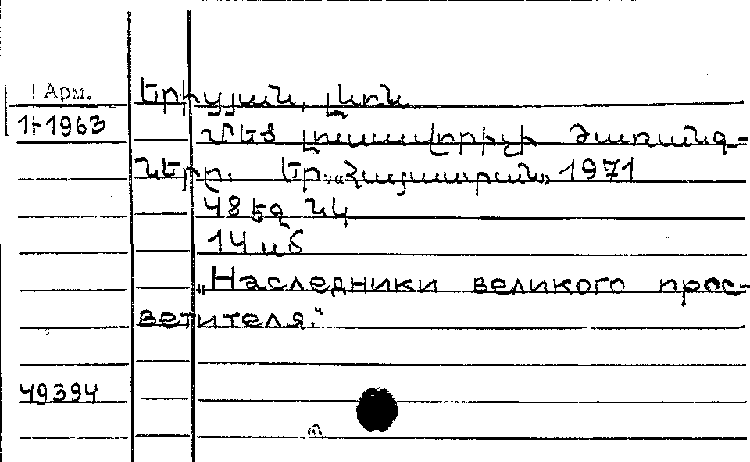 Арм. Երիցյան, Լևոն
1-1963 Մեծ լուսավորիչի ժառանգ-
ները. Եր. «Հայաստան» 1971
48 էջ նկ
14 սմ
„Наследники великого прос-
ветителя.“
49394